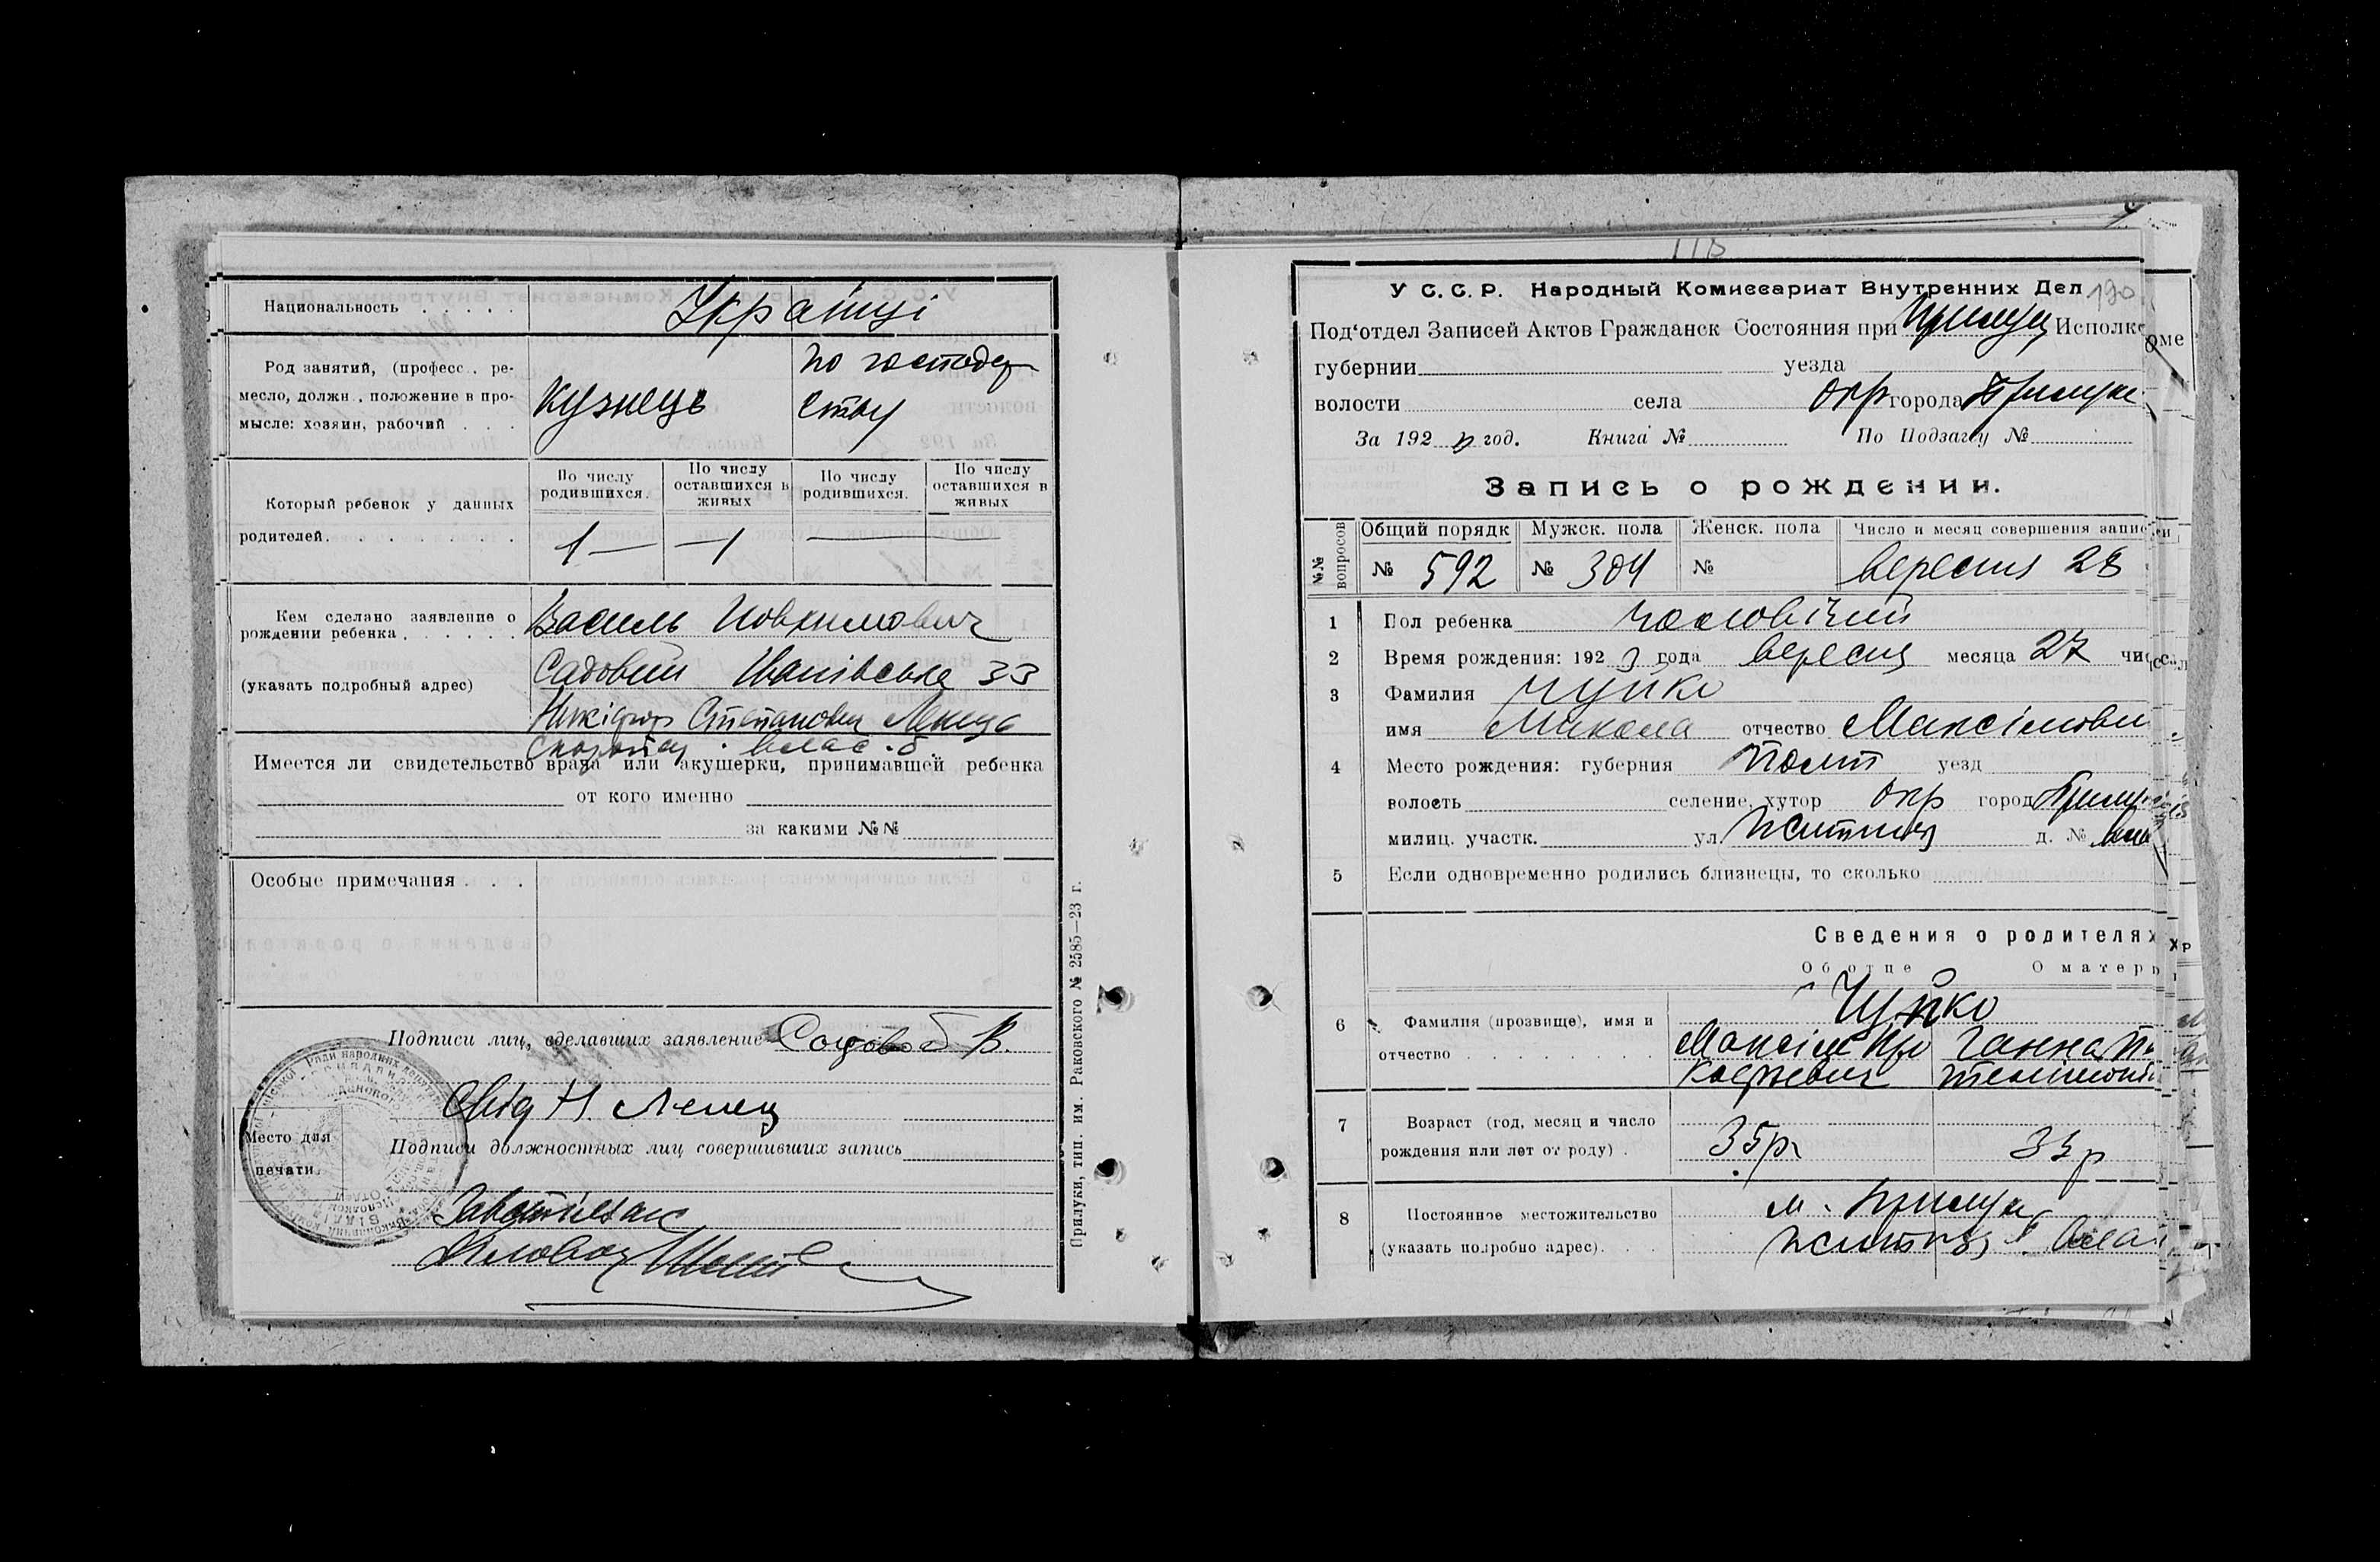 Национальность . . . . .
Українці
Род занятий, (професс. ре-
месло, должн. положение в про-
мысле: хозяин, рабочий . . .
кузнець
по господар
ству
Который ребенок у данных
родителей. . . . . . .
По числу
родившихся.
По числу
оставшихся в
живых
По числу
родившихся.
По числу
оставшихся в
живых
1 — — 1
Кем сделано заявление о
рождении ребенка . . . . . .
(указать подробный адрес)
Василь
Садовий Іванівська 33
Никіфор Степанович
влас. б.
Имеется ли свидетельство врача или акушерки, принимавшей ребенка
от кого именно
за какими №№
Особые примечания . . .
Подписи лиц, сделавших заявление Садовой В.
Свід Н.
Подписи должностных лиц совершивших запись
Место для
печати.
Завстолом
Діловод
Прилуки, тип. им. Раковского № 2585—23 г.
190
У С. С. Р. Народный Комиссариат Внутренних Дел
Под'отдел Записей Актов Гражданск Состояния при Прилуц Исполк
оме
губернии уезда
волости села окр города Прилуки
За 192 3 год. Книга № По Подзагу №
Запись о рождении.
№№ вопросов
Общий порядк Мужск. пола Женск. пола Число и месяц совершения запис
№ 592 № 304 № вересня 28
1 Пол ребенка чоловічий
2 Время рождения: 192 3 года вересня месяца 27 чис
3 Фамилия Чуйко
имя Микола отчество Максімови
4 Место рождения: губерния Полт уезд
волость селение, хутор окр город Прилуки
милиц. участк. ул. Житня д. № вла
5 Если одновременно родились близнецы, то сколько
Сведения о родителях
Об отце О матери
6 Фамилия (прозвище), имя и
отчество . . . . . . . .
Чуйко
Максім Про Ганна Па
кофьевич
7 Возраст (год, месяц и число
рождения или лет от роду) .
35 р. 33 р
8 Постоянное местожительство
(указать подробно адрес). . .
м. Прилуки
Житня